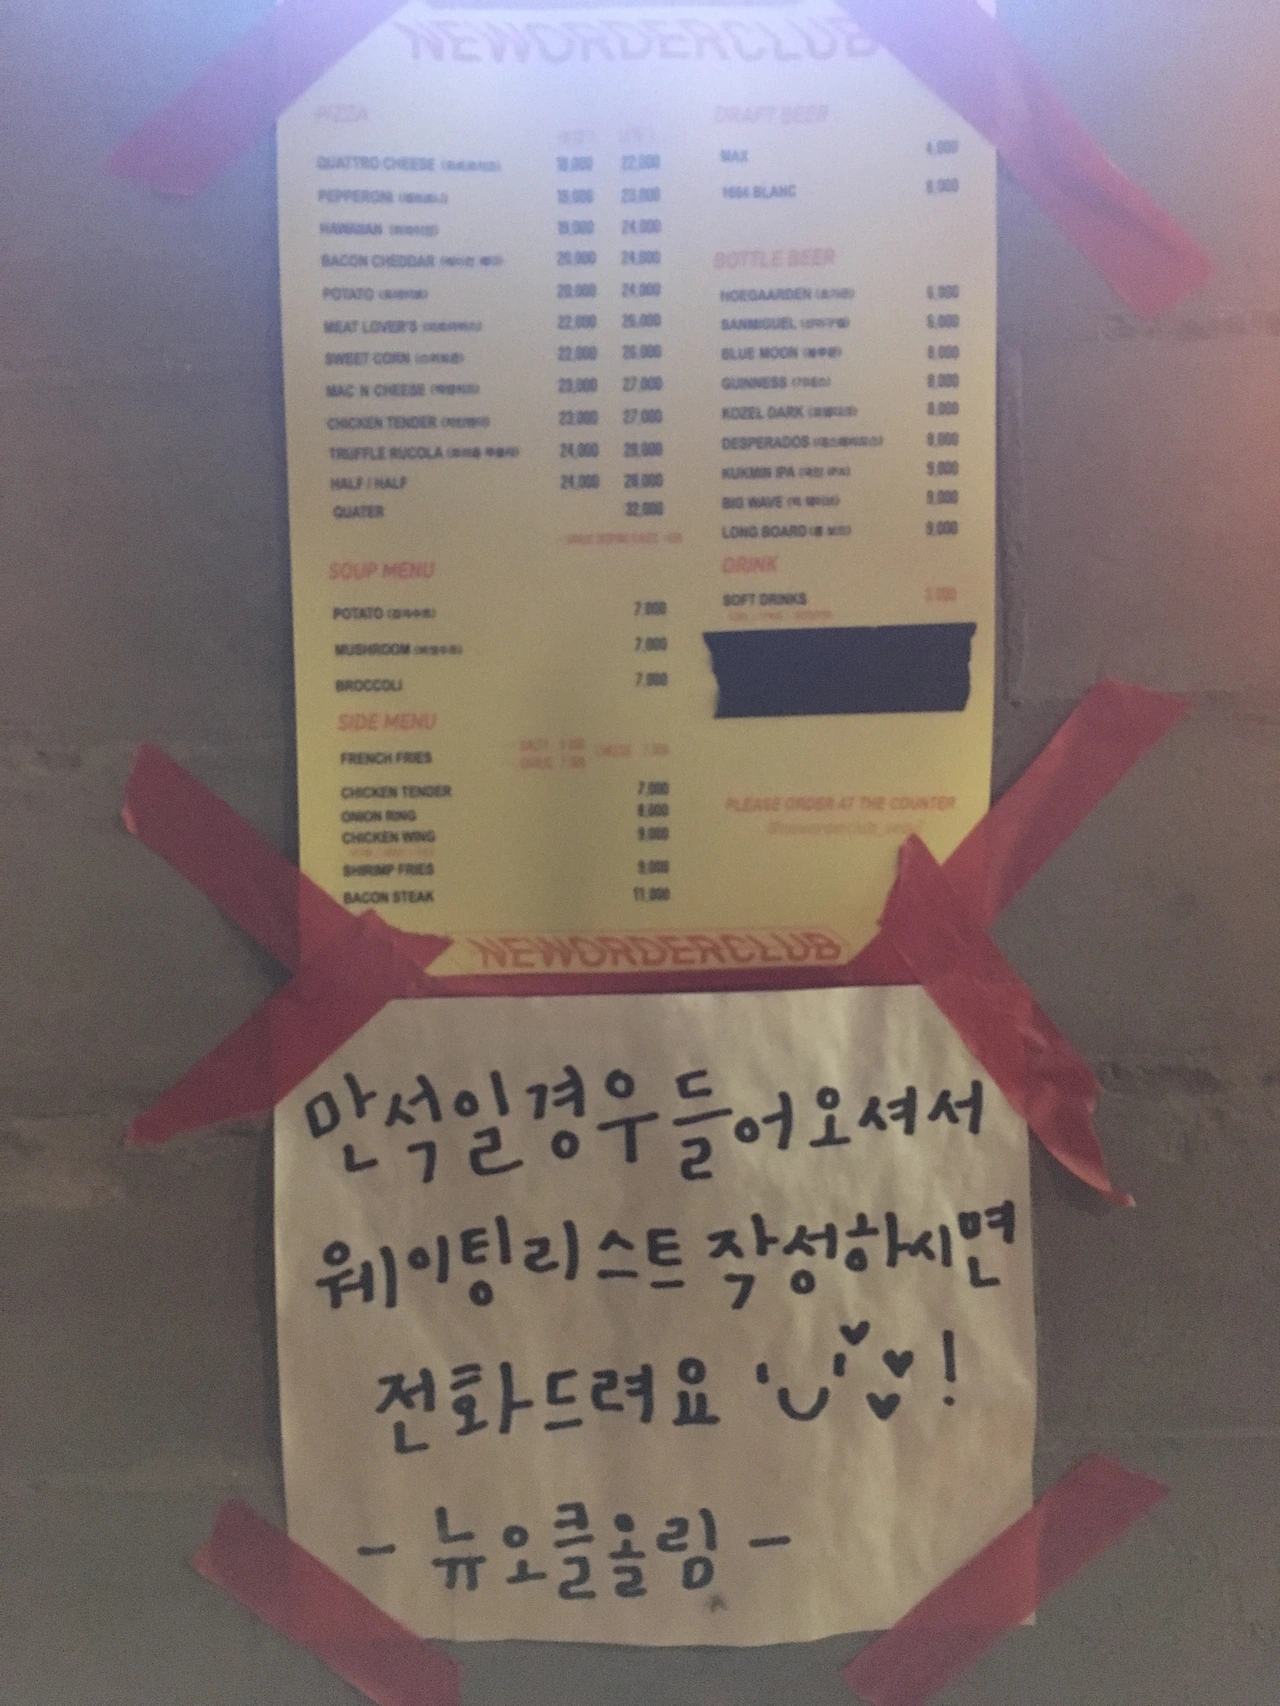 NEWORDERCLUB
PIZZA
QUATTRO CHEESE 18,000 22,000
PEPPERONI 19,000 23,000
HAWAIIAN 19,000 24,000
BACON CHEDDAR 20,000 24,000
POTATO 20,000 24,000
MEAT LOVER'S 22,000 26,000
SWEET CORN 22,000 26,000
MAC N CHEESE 23,000 27,000
CHICKEN TENDER 23,000 27,000
TRUFFLE RUCOLA 24,000 28,000
HALF / HALF 24,000 28,000
QUATER 32,000
SOUP MENU
POTATO (감자수프) 7,000
MUSHROOM (버섯수프) 7,000
BROCCOLI 7,000
SIDE MENU
FRENCH FRIES
CHICKEN TENDER 7,000
ONION RING 8,000
CHICKEN WING 9,000
SHIRIMP FRIES 9,000
BACON STEAK 11,000
DRAFT BEER
MAX 4,000
1664 BLANC 8,000
BOTTLE BEER
HOEGAARDEN (호가든) 6,000
SANMIGUEL (산미구엘) 6,000
BLUE MOON (블루문) 8,000
GUINNESS (기네스) 8,000
KOZEL DARK (코젤다크) 8,000
DESPERADOS (데스페라도스) 8,000
KUKMIN IPA (국민 IPA) 9,000
BIG WAVE (빅 웨이브) 9,000
LONG BOARD (롱 보드) 9,000
DRINK
SOFT DRINKS
PLEASE ORDER AT THE COUNTER
NEWORDERCLUB
만석일경우들어오셔서
웨이팅리스트 작성하시면
전화드려요 !
- 뉴오클올림 -